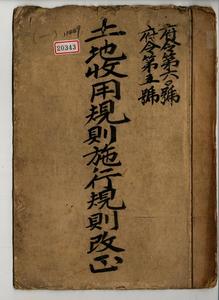 府令第六〇號
府令第五號
土地收用規則施行規則改正
(一)
20343